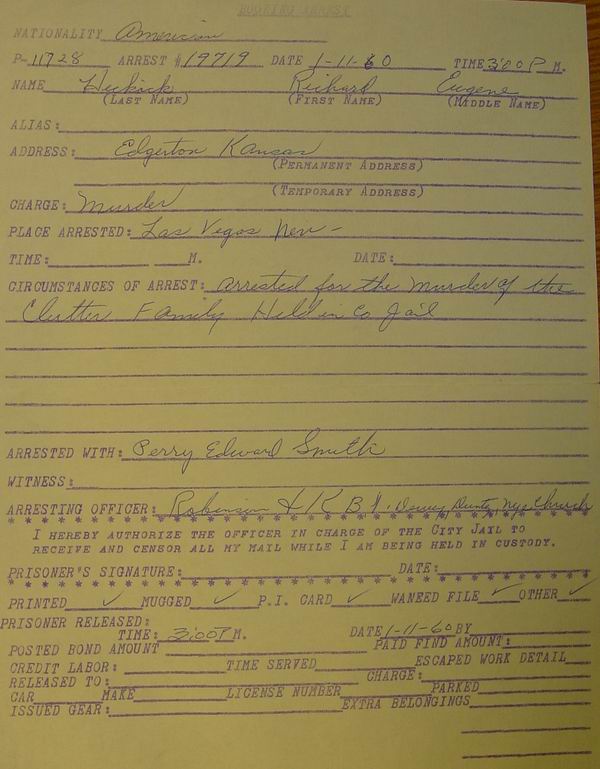 BOOKING SHEET
NATIONALITY American
P- 11728 ARREST # 19719 DATE 1-11-60 TIME 3:00 P M.
NAME Hickock Richard Eugene
(LAST NAME) (FIRST NAME) (MIDDLE NAME)
ALIAS:
ADDRESS: Edgerton Kansas
(PERMANENT ADDRESS)
(TEMPORARY ADDRESS)
CHARGE: Murder
PLACE ARRESTED: Las Vegas Nev -
TIME: M. DATE:
CIRCUMSTANCES OF ARREST: Arrested for the murder of the
Clutter Family Held in Co Jail
ARRESTED WITH: Perry Edward Smith
WITNESS:
ARRESTING OFFICER: Robinson & K B I, Dewey, Duntz, Nye Church
* * * * * * * * * * * * * * * * * * * * * * * * * * * * * *
I HEREBY AUTHORIZE THE OFFICER IN CHARGE OF THE CITY JAIL TO
RECEIVE AND CENSOR ALL MY MAIL WHILE I AM BEING HELD IN CUSTODY.
PRISONER'S SIGNATURE: DATE:
* * * * * * * * * * * * * * * * * * * * * * * * * * * * * *
PRINTED ✓ MUGGED ✓ P.I. CARD ✓ WANEED FILE ✓ OTHER ✓
PRISONER RELEASED:
TIME: 3:00 P M. DATE 1-11-60 BY
POSTED BOND AMOUNT PAID FIND AMOUNT:
CREDIT LABOR: TIME SERVED ESCAPED WORK DETAIL
RELEASED TO: CHARGE:
CAR MAKE LICENSE NUMBER PARKED
ISSUED GEAR: EXTRA BELONGINGS